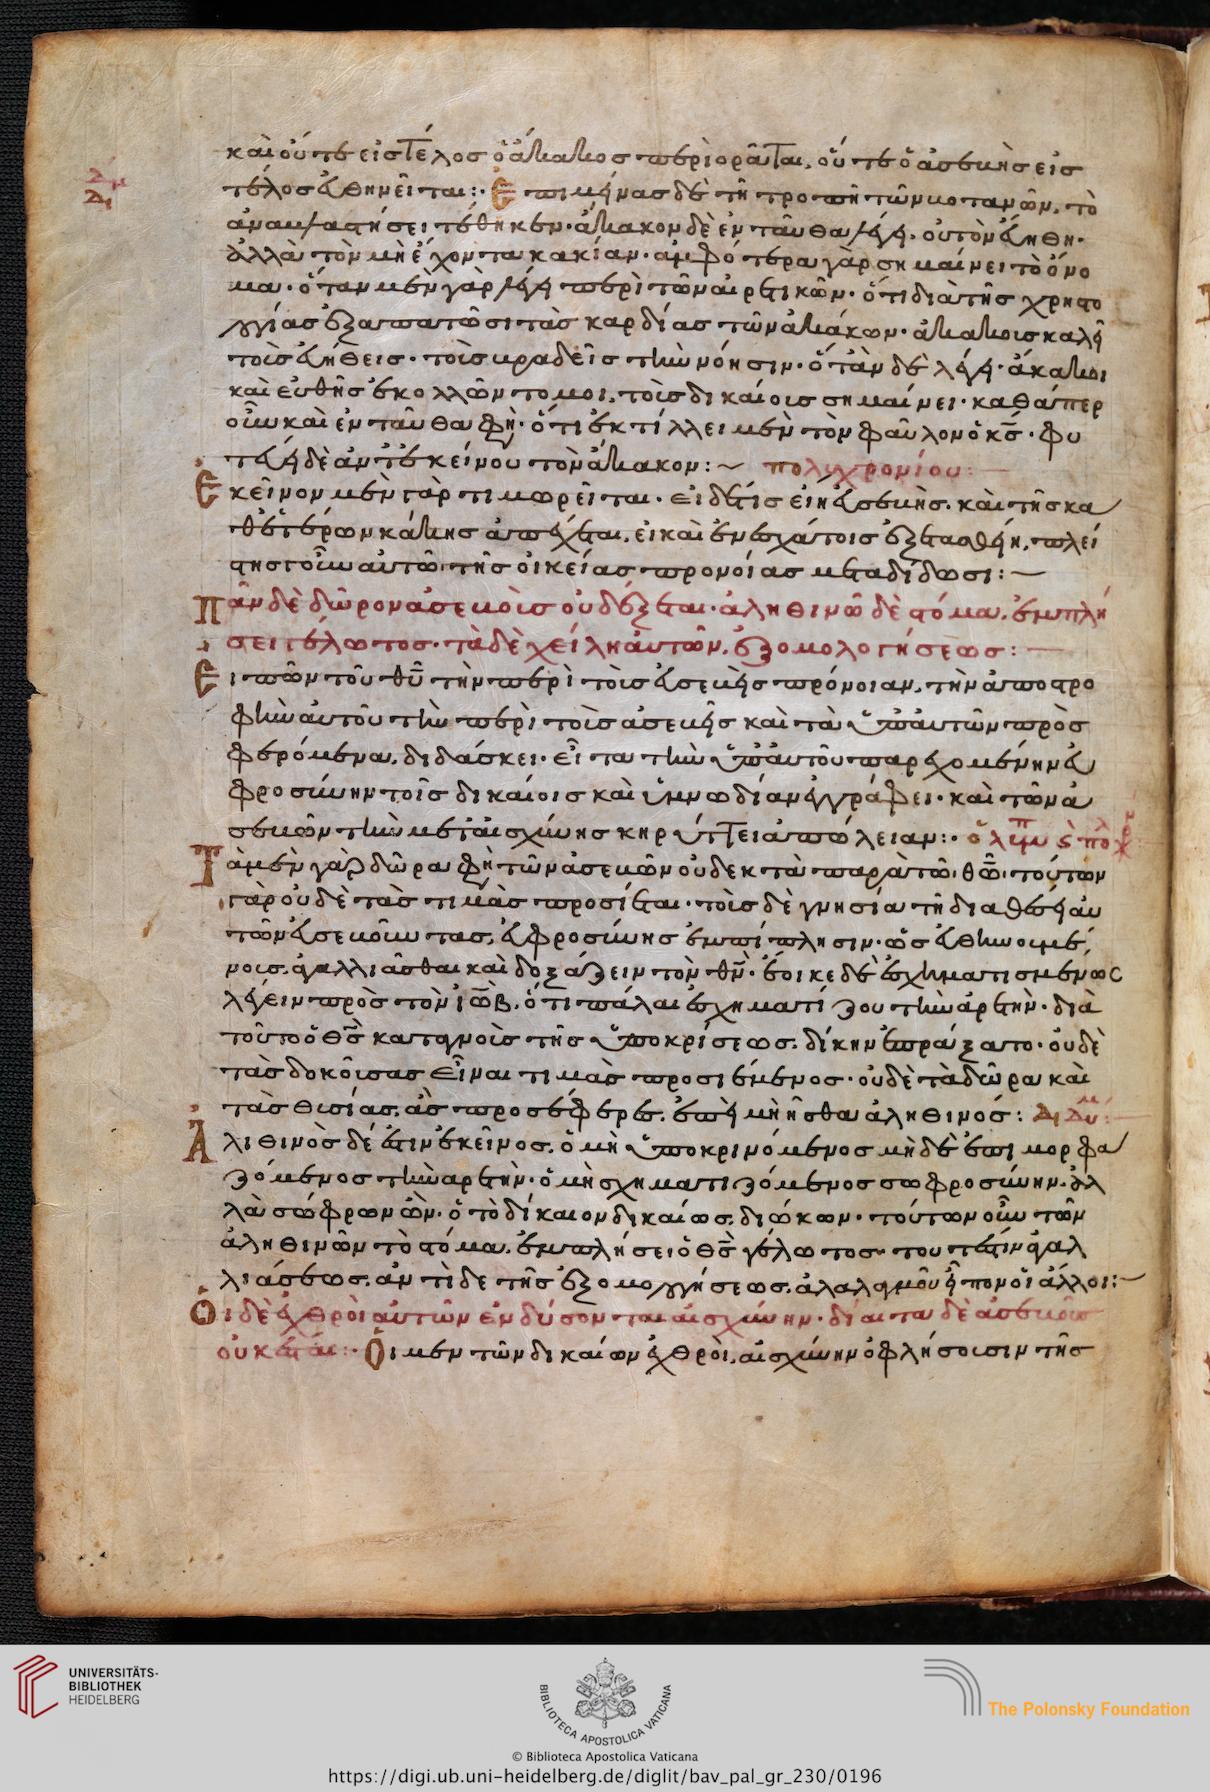 καὶ οὔτε εἰς τέλος ὁ ἄκακος περιορᾶται, οὔτε ὁ ἀσεβὴς εἰς
τέλος εὐθηνεῖται: Ἐπιμείνας δὲ τῇ τροπῇ τῶν βοτανῶν, τὸ
τέθηκεν· ἄκακον δὲ ἐνταῦθα λέγει· οὐ τὸν εὐήθη·
ἀλλὰ τὸν μὴ ἔχοντα κακίαν· ἀμφότερα γὰρ σημαίνει τὸ ὄνο
μα· ὅταν μὲν γὰρ λέγῃ περὶ τῶν αἱρετικῶν· ὅτι διὰ τῆς χρηστο
λογίας ἐξαπατῶσι τὰς καρδίας τῶν ἀκάκων· ἀκάκοις καλεῖ
τοὶς εὐήθεις· τοὶς βραδεῖς τὴν νόησιν· ὅτὰν δὲ λέγῃ· ἄκακοι
καὶ εὐθῆς ἐκολλῶντό μοι, τοὶς δικαίοις σημαίνει· καθάπερ
οὖν καὶ ἐνταῦθα φὴ· ὅτι ἐκτίλλει μὲν τὸν φαῦλον ὁ κς· φυ
τεύει δὲ ἀντ' ἐκείνου τὸν ἄκακον: ~ πολυχρονίου:
Ἐκεῖνον μὲν γὰρ τιμωρεῖται· εἰ δέ τις εἴη εὐσεβὴς· καὶ τῆς κα
θ' ἑτέρων κάκης ἀπέχεται, εἰ καὶ ἐν ἐσχάτοις ἐξετασθείη, πλεί
στης οὖν αὐτῶ τῆς οἰκείας προνοίας μεταδίδωσι: —
Πᾶν δὲ δῶρον ἀσεβοὶς οὐ δέξεται· ἀληθινῶ δὲ στόμα, ἐμπλή
σει γέλωτος· τὰ δὲ χείλη αὐτῶν, ἐξομολογήσεως: —
Εἰπὼν τοῦ θυ τὴν περὶ τοὶς εὐσεβεῖς πρόνοιαν, τὴν ἀποστρο
φὴν αὐτοῦ τὴν περὶ τοὶς ἀσεβεῖς καὶ τὰ ὑπ' αὐτῶν προς
φερόμενα, διδάσκει· εἶτα τὴν ὑπ' αὐτοῦ παρεχομένην εὐ
φροσύνην τοῖς δικαίοις καὶ ὑμνωδίαν ἐγγράφει· καὶ τῶν ἀ
σεβῶν τὴν μετ' αἰσχύνης κηρύττει ἀπώλειαν:·
Τὰ μὲν γὰρ δῶρα φὴ τῶν ἀσεβῶν οὐ δεκτὰ παρ' αὐτῶ· θῶ· τούτων
γὰρ οὐδὲ τὰς τιμὰς προσίεται· τοὶς δὲ γνησία τῇ διαθέσει αὐ
τῶν εὐσεβοῦντας, εὐφροσύνης ἐμπίπλησιν· ὡς εὐθηνουμέ
νοις, ἀγαλλιᾶσθαι καὶ δοξάζειν τὸν θν· ἔοικε δὲ ἐσχηματισμένως
λέγειν πρὸς τὸν ἰώβ, ὅτι πάλαι ἐσχηματίζου τὴν ἀρετὴν· διὰ
τοῦτο ὁ θς καταγνοὶς τῆς ὑποκρίσεως, δίκην ἐπράξατο· οὐδὲ
τὰς δοκοῖσας εἶναι τιμὰς προσιέμενος· οὐδὲ τὰ δῶρα καὶ
τὰς θισίας, ἃς προσέφερες, ἐπεὶ μὴ ἦσθα ἀληθινός:
Ἀλιθινὸς δέ ἐστιν ἐκεῖνος, ὁ μὴ ὑποκρινόμενος μηδὲ ἐπιμορφα
ζόμενος τὴν ἀρετὴν· ὁ μὴ σχηματιζόμενος σωφροσύνην· ἀλ
λὰ σώφρων ὢν· ὁ τὸ δίκαιον δικαίως διώκων· τούτων οὖν τῶν
ἀληθινῶν τὸ στόμα, ἐμπλήσει ὁ θς γέλωτος· τουτέστιν ἀγαλ
λιάσεως, ἀντὶ δε τῆς ἐξομολογήσεως, ἀλαλαγμοῦ εἶπον οἱ ἄλλοι: —
Οἱ δὲ ἐχθροὶ αὐτῶν ἐνδύσονται αἰσχύνην· δίαιτα δὲ ἀσεβοῦς
οὐκ ἔσται: Οἱ μεν τῶν δικαίων ἐχθροὶ, αἰσχύνην ὀφλήσοισιν τῆς
UNIVERSITÄTS-
BIBLIOTHEK
HEIDELBERG
BIBLIOTECA APOSTOLICA VATICANA
The Polonsky Foundation
© Biblioteca Apostolica Vaticana
https://digi.ub.uni-heidelberg.de/diglit/bav_pal_gr_230/0196